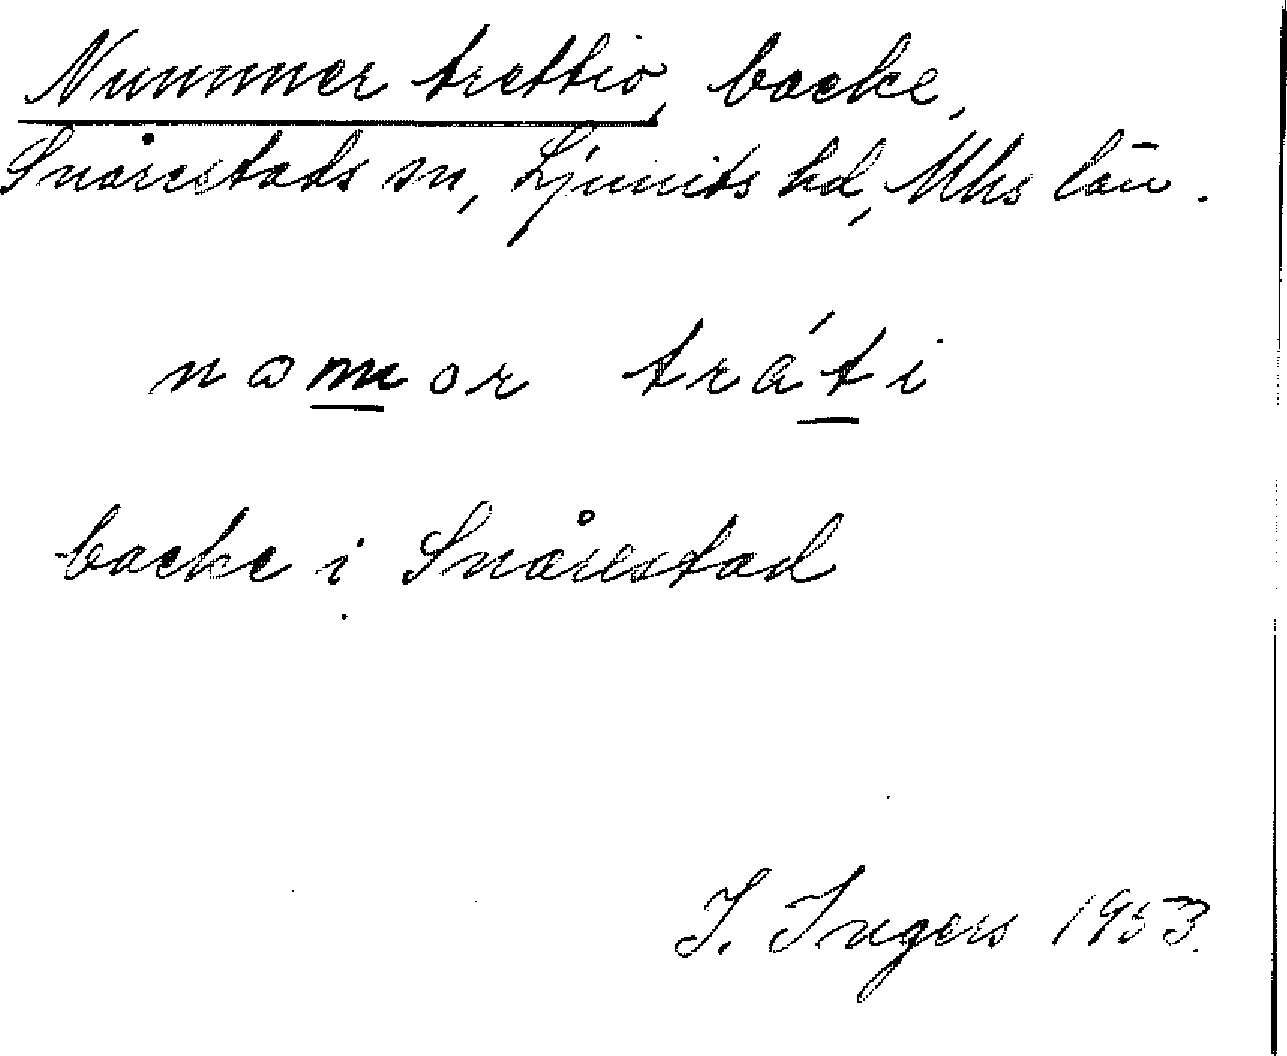 Nummer trettio, backe,
Snårestads sn, Ljunits hd, Mhs län.
nomor tráti
backe i Snårestad
I. Ingers 1953.